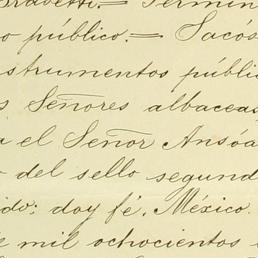 Termin
o público.= Sacós
strumentos públic
s Señores albaceas
a el Señor Ansóa
o del sello segund
ido; doy fé. México.
e mil ochocientos